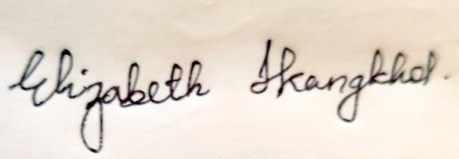 Elizabeth Ikangkhol.